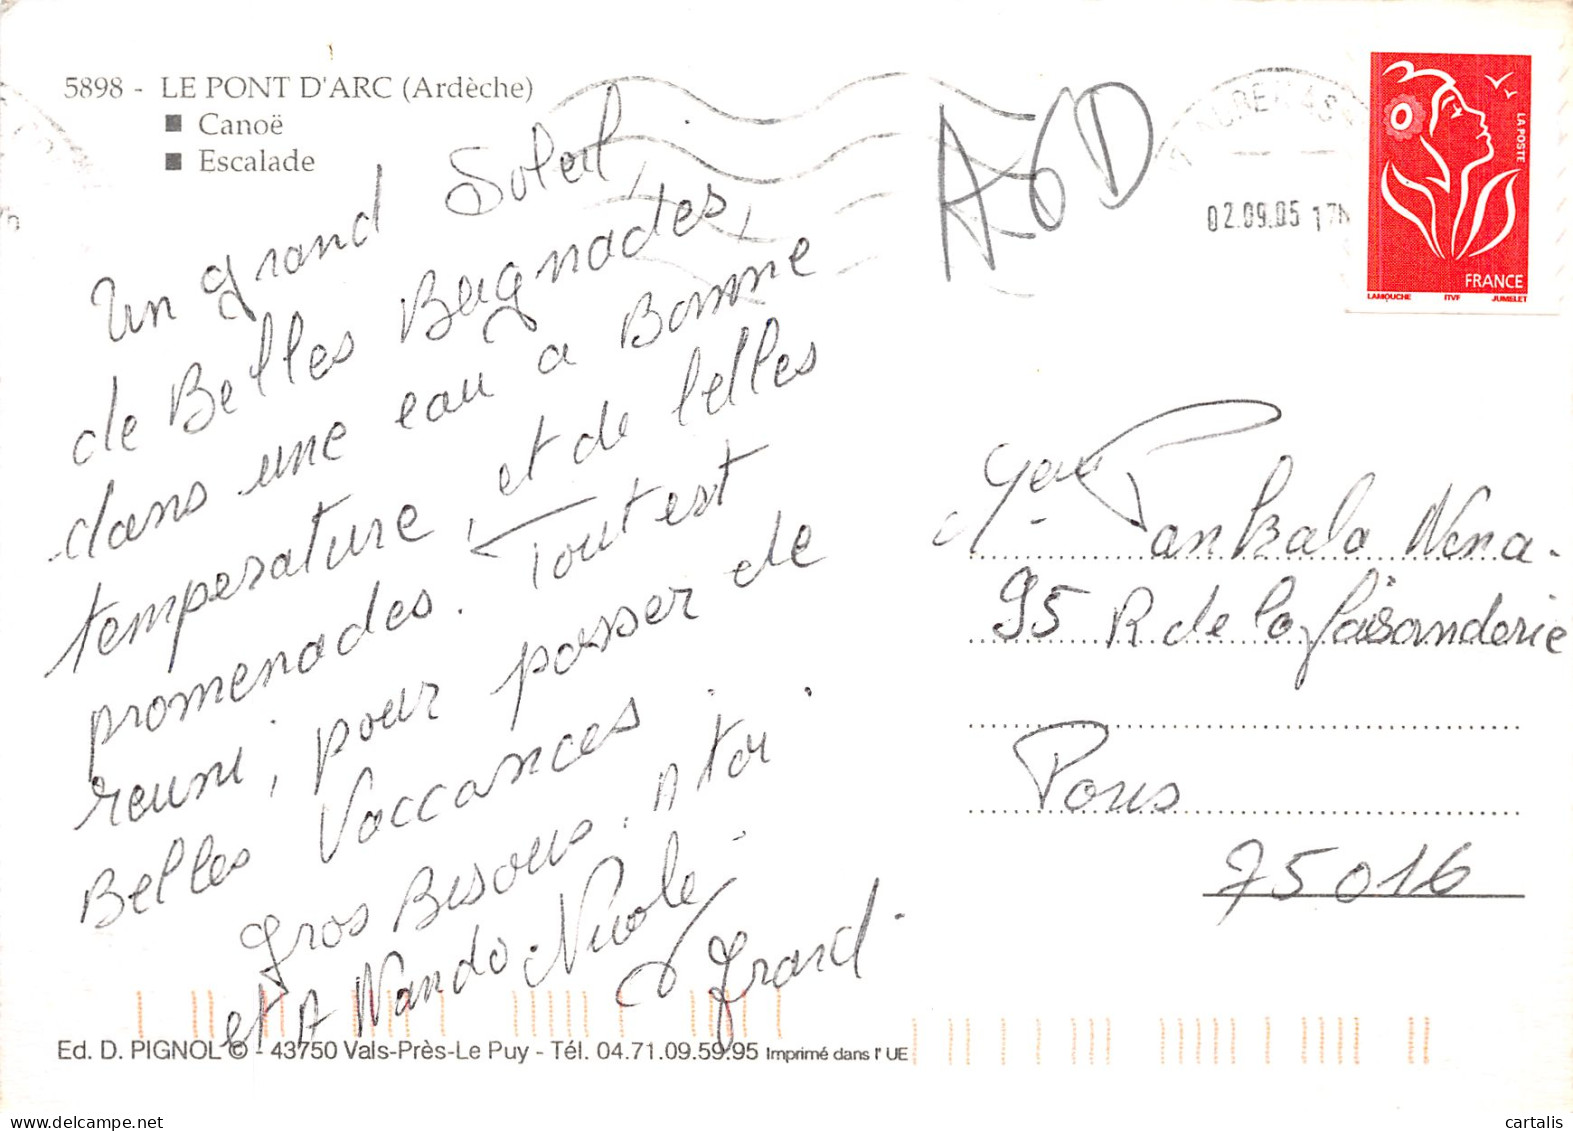 5898 - LE PONT D'ARC (Ardèche)
■ Canoë
■ Escalade
Un grand Soleil,
de Belles Baignades,
dans une eau a Bonne
temperature, et de belles
promenades. Tout est
reuni, pour passer de
Belles Vaccances.
Gros Bisous. A toi
et A Nando. Nicole
Gerard
AUBENAS
02.09.05 17H
LA POSTE
FRANCE
LAMOUCHE ITVF JUMELET
Pankala Nena.
95 R de la faisanderie
Paris
75016
Ed. D. PIGNOL © - 43750 Vals-Près-Le Puy - Tél. 04.71.09.59.95 Imprimé dans l' UE
cartalis